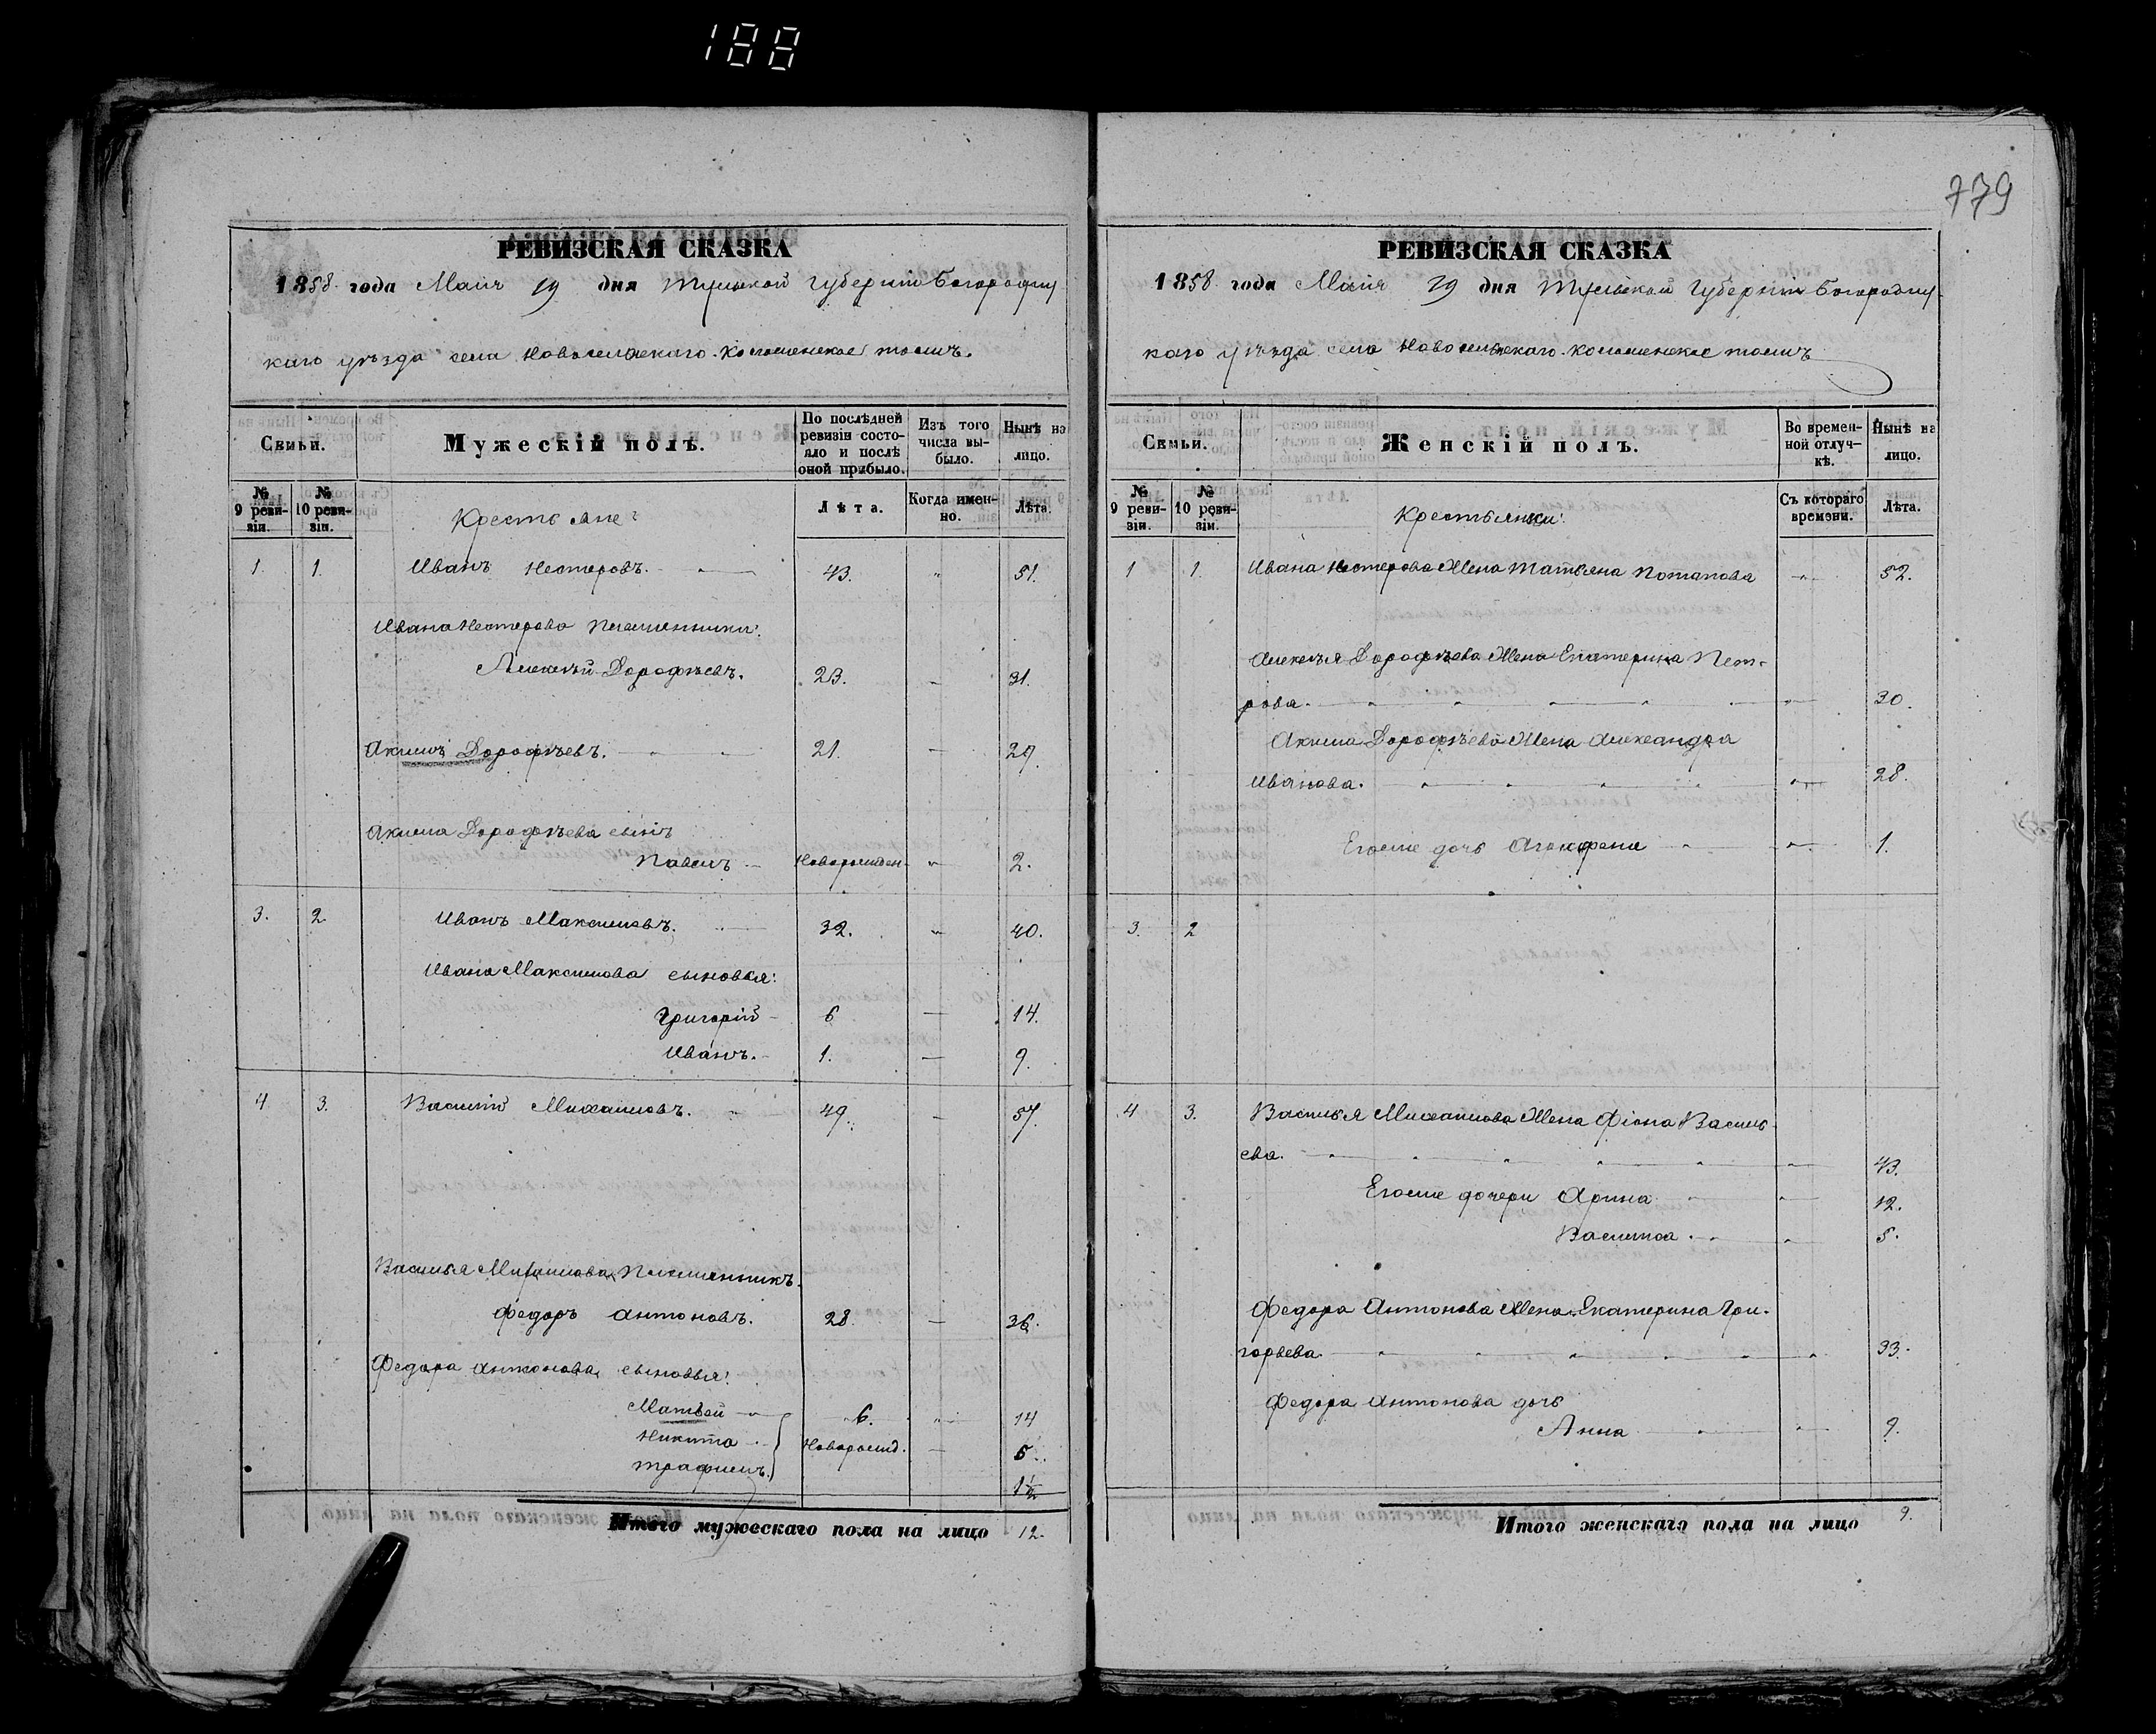 188
779
РЕВИЗСКАЯ СКАЗКА
1858 года Маія 19 дня Тульской Губерніи Богородиц
каго уѣзда села Новосельскаго. Коломенское тожъ.
Свмьи.
Мужескій полъ.
По послѣдней ревизіи состо-
яло и послѣ оной прибыло.
Изъ того числа вы-
было.
Нынѣ на лицо.
№ 9 реви-
зіи.
№ 10 реви-
зіи.
Крестьяне:
Лѣта.
Когда имен-
но.
Лѣта.
1. 1. Иванъ Нестеровъ. 43. 51.
Ивана Нестерова племянники:
Алексѣй Дорофѣевъ. 23. 31.
Акимъ Дорофѣевъ. 21. 29.
Акима Дорофѣева сынъ
Павелъ Новорожден. 2.
3. 2. Иванъ Максимовъ. 32. 40.
Ивана Максимова сыновья:
Григорій 6 14.
Иванъ. 1. 9.
4 3. Василій Михайловъ. 49. 57.
Василья Михайлова племянникъ.
Федоръ Антоновъ. 28. 36.
Федора Антонова сыновья:
Матвей 6. 14
Никита Новорожд. 5.
Трафимъ. 1½
Итого мужескаго пола на лицо 12.
РЕВИЗСКАЯ СКАЗКА
1858 года Маія 19 дня Тульской Губерніи Богородиц-
каго уѣзда села Новосельскаго. Коломенское тожъ
Свмьи.
Женскій полъ.
Во времен-
ной отлуч-
кѣ.
Нынѣ на лицо.
№ 9 реви-
зіи.
№ 10 реви-
зіи.
Крестьянки:
Съ котораго времени.
Лѣта.
1 1. Ивана Нестерова Жена Татьяна Потапова 52.
Алексѣя Дорофѣева Жена Екатерина Пет-
рова. 30.
Акима Дорофѣева Жена Александра
Иванова. 28.
Егоже дочь Агафена 1.
3. 2
4 3. Василья Михайлова Жена Фіона Василь-
ева. 43.
Егоже дочери Арина 12.
Василиса 5.
Федора Антонова Жена Екатерина Гри-
горьева 33.
Федора Антонова дочь
Анна 9.
Итого женскаго пола на лицо 9.